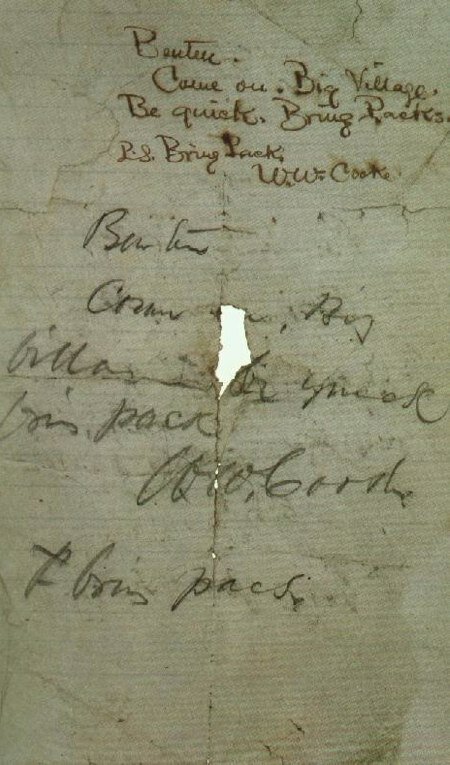 Benteen.
Come on. Big Village.
Be quick. Bring Packs.
P.S. Bring Pack.
W.W. Cooke
Benteen
Come on, Big
Village be quick
bring packs
W.W. Cooke
P bring pacs.